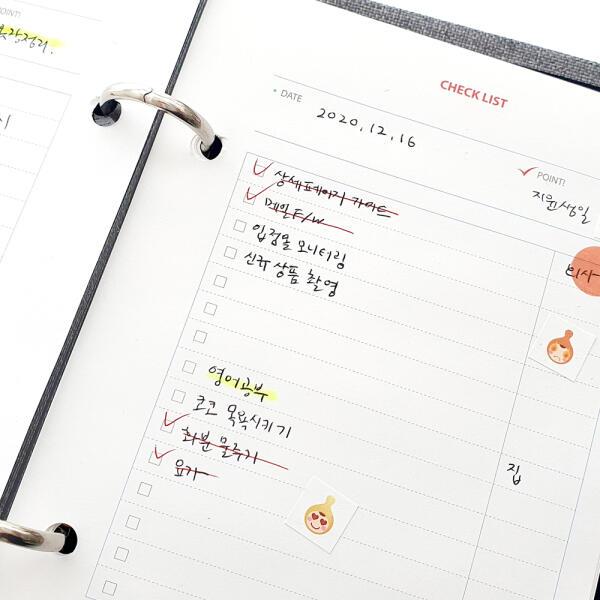 POINT!
옷장정리.
CHECK LIST
DATE
2020.12.16
POINT!
지원생일
상세페이지 가이드
메일F/W
입점몰 모니터링
신규 상품 촬영
회사
영어공부
코코 목욕시키기
화분 물주기
집
요가